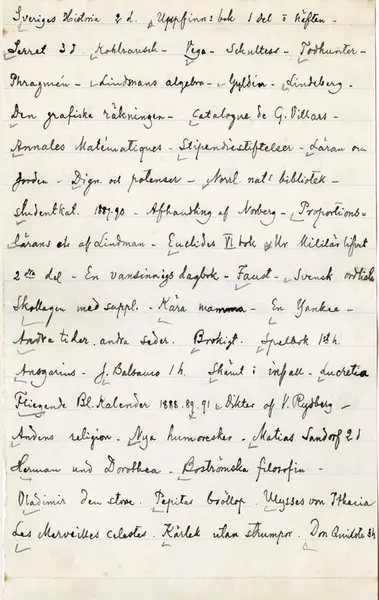 Sveriges Historia 2 d. Uppfinn: bok 1 del o häften -
Serret 3 d Kohlrausch - Vega - Schultess - Todhunter -
Phragmén - Lindmans algebra - Gyldén - Lindeberg -
Den grafiska räkningen - Catalogue de G. Villars -
Annales Matématiques - Stipendiestiftelser - Läran om
Jorden - Dign. och potenser - Norrl. nat: bibliotek -
studentkat. 1887.90 - Afhandling af Norberg - Proportions-
lärans etc af Lindman - Euclides VI bok - Ur Militär lifvet
2dra del - En vansinnigs dagbok - Faust - Svensk ordlista
Skollagen med suppl. - Kära mamma - En Yankee -
Andra tider, andra seder. Brokigt. Spelbok 1st h.
Ansgarius - J. Balsamo 1 h. Skämt i infall - Lucretia
Fliegende Bl. Kalender 1888.89.91 - Dikter af V. Rydberg -
Andens religion. Nya humoresker. Matias Sandorf 2 d
Herman und Dorothea - Boströmska filosofin -
Vladimir den store. Pepitas bröllop. Ulysses von Ithacia
Les Merveilles celestes. Kärlek utan strumpor. Don Quixote 3h